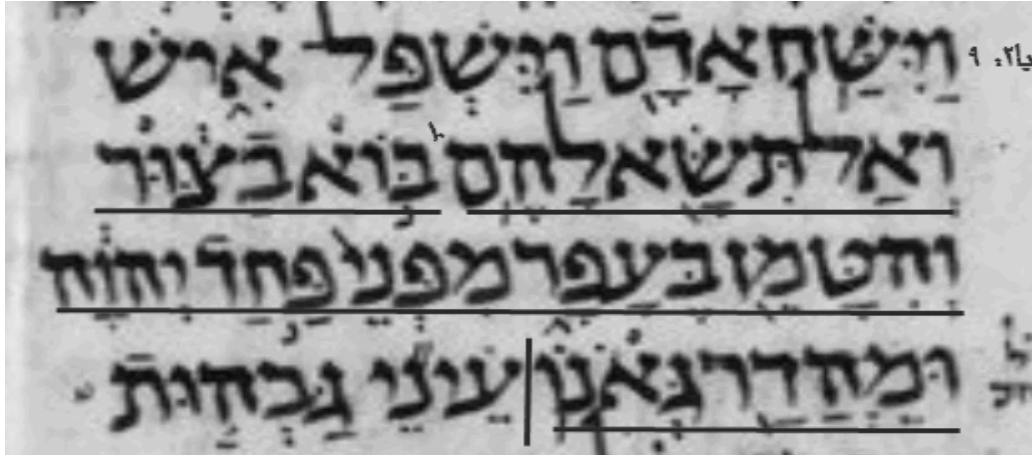 וַיִּשַּׁח אָדָם וַיִּשְׁפַּל אִישׁ
וְאַל תִּשָּׂא לָהֶם בּוֹא בַצּוּר
וְהִטָּמֵן בֶּעָפָר מִפְּנֵי פַּחַד יְהוָה
וּמֵהֲדַר גְּאֹנוֹ עֵינֵי גַּבְהוּת